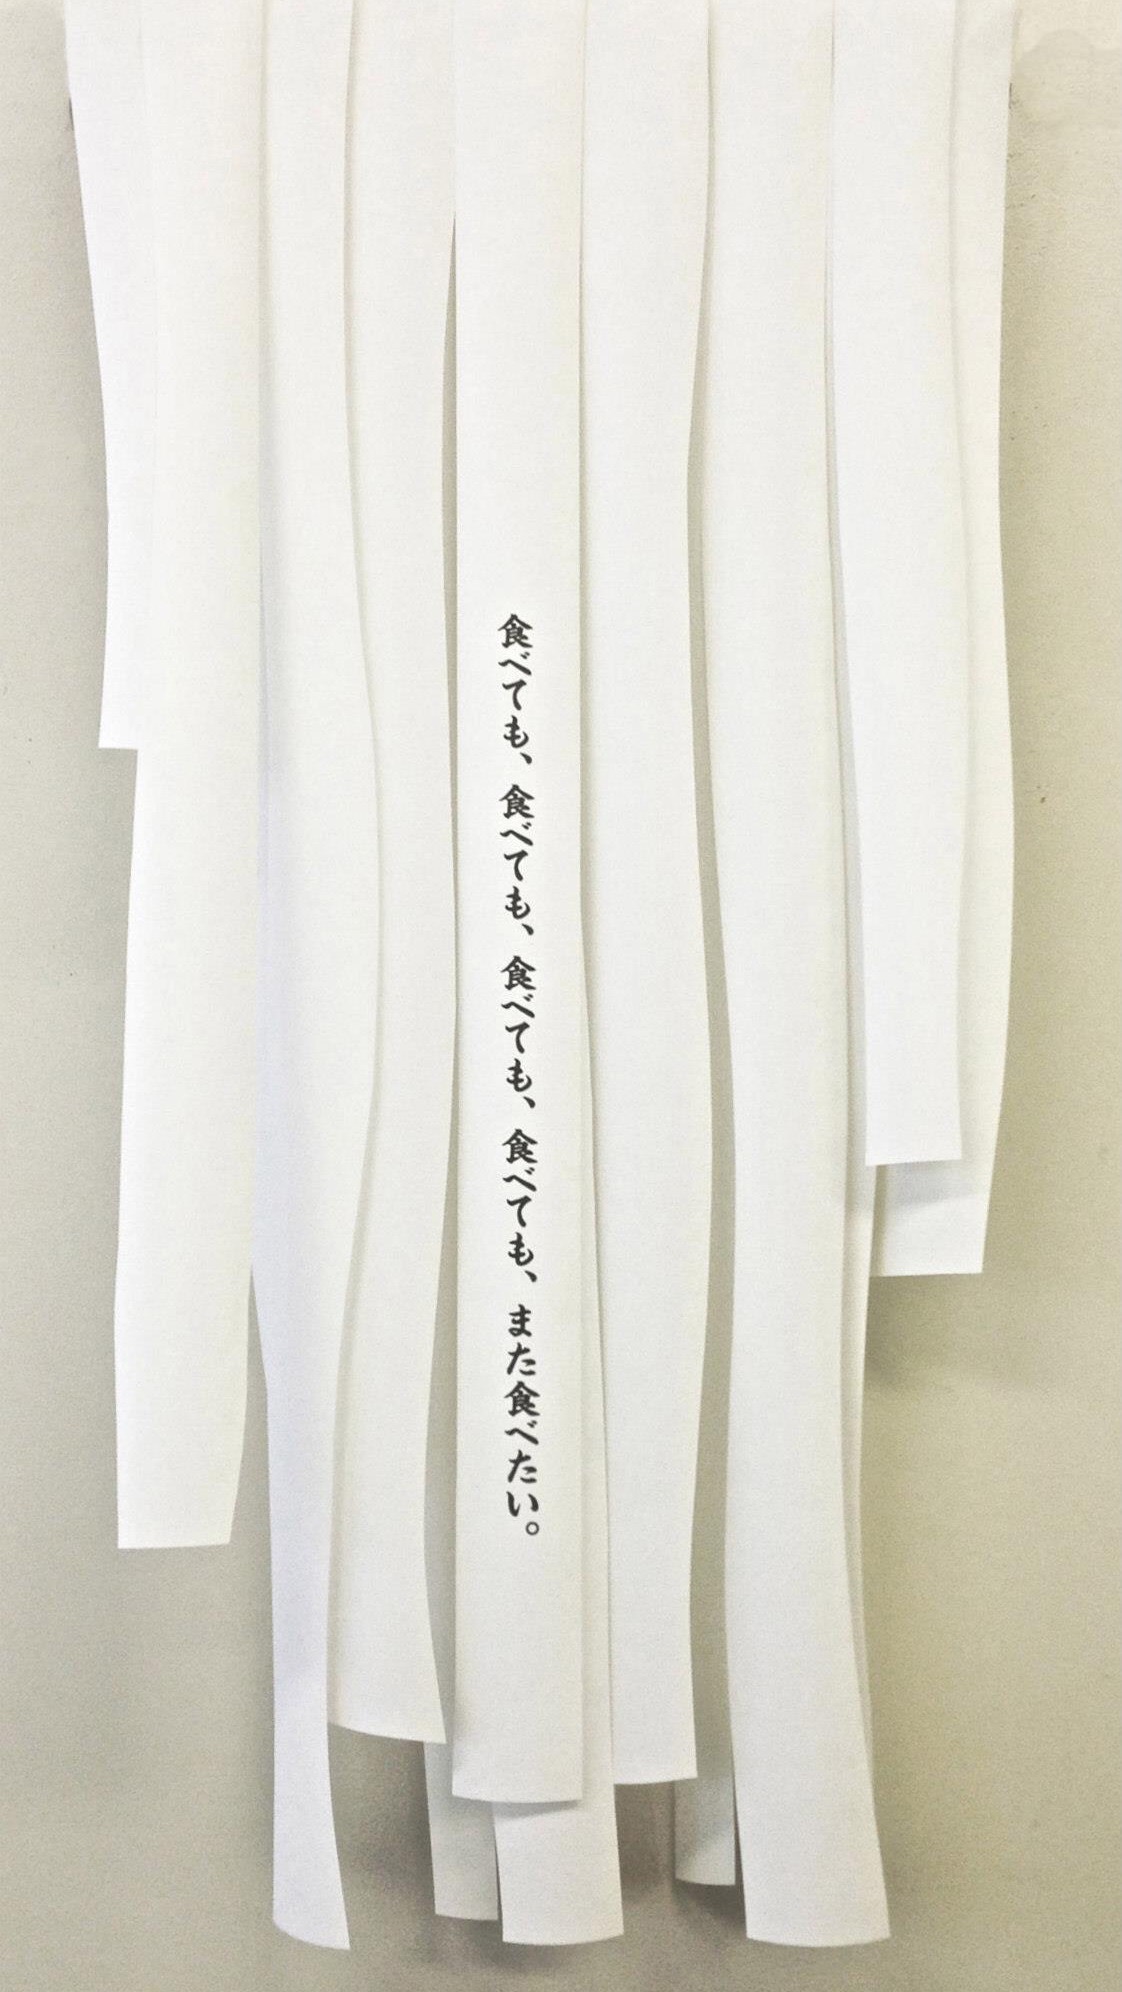 食べても、食べても、食べても、食べても、また食べたい。